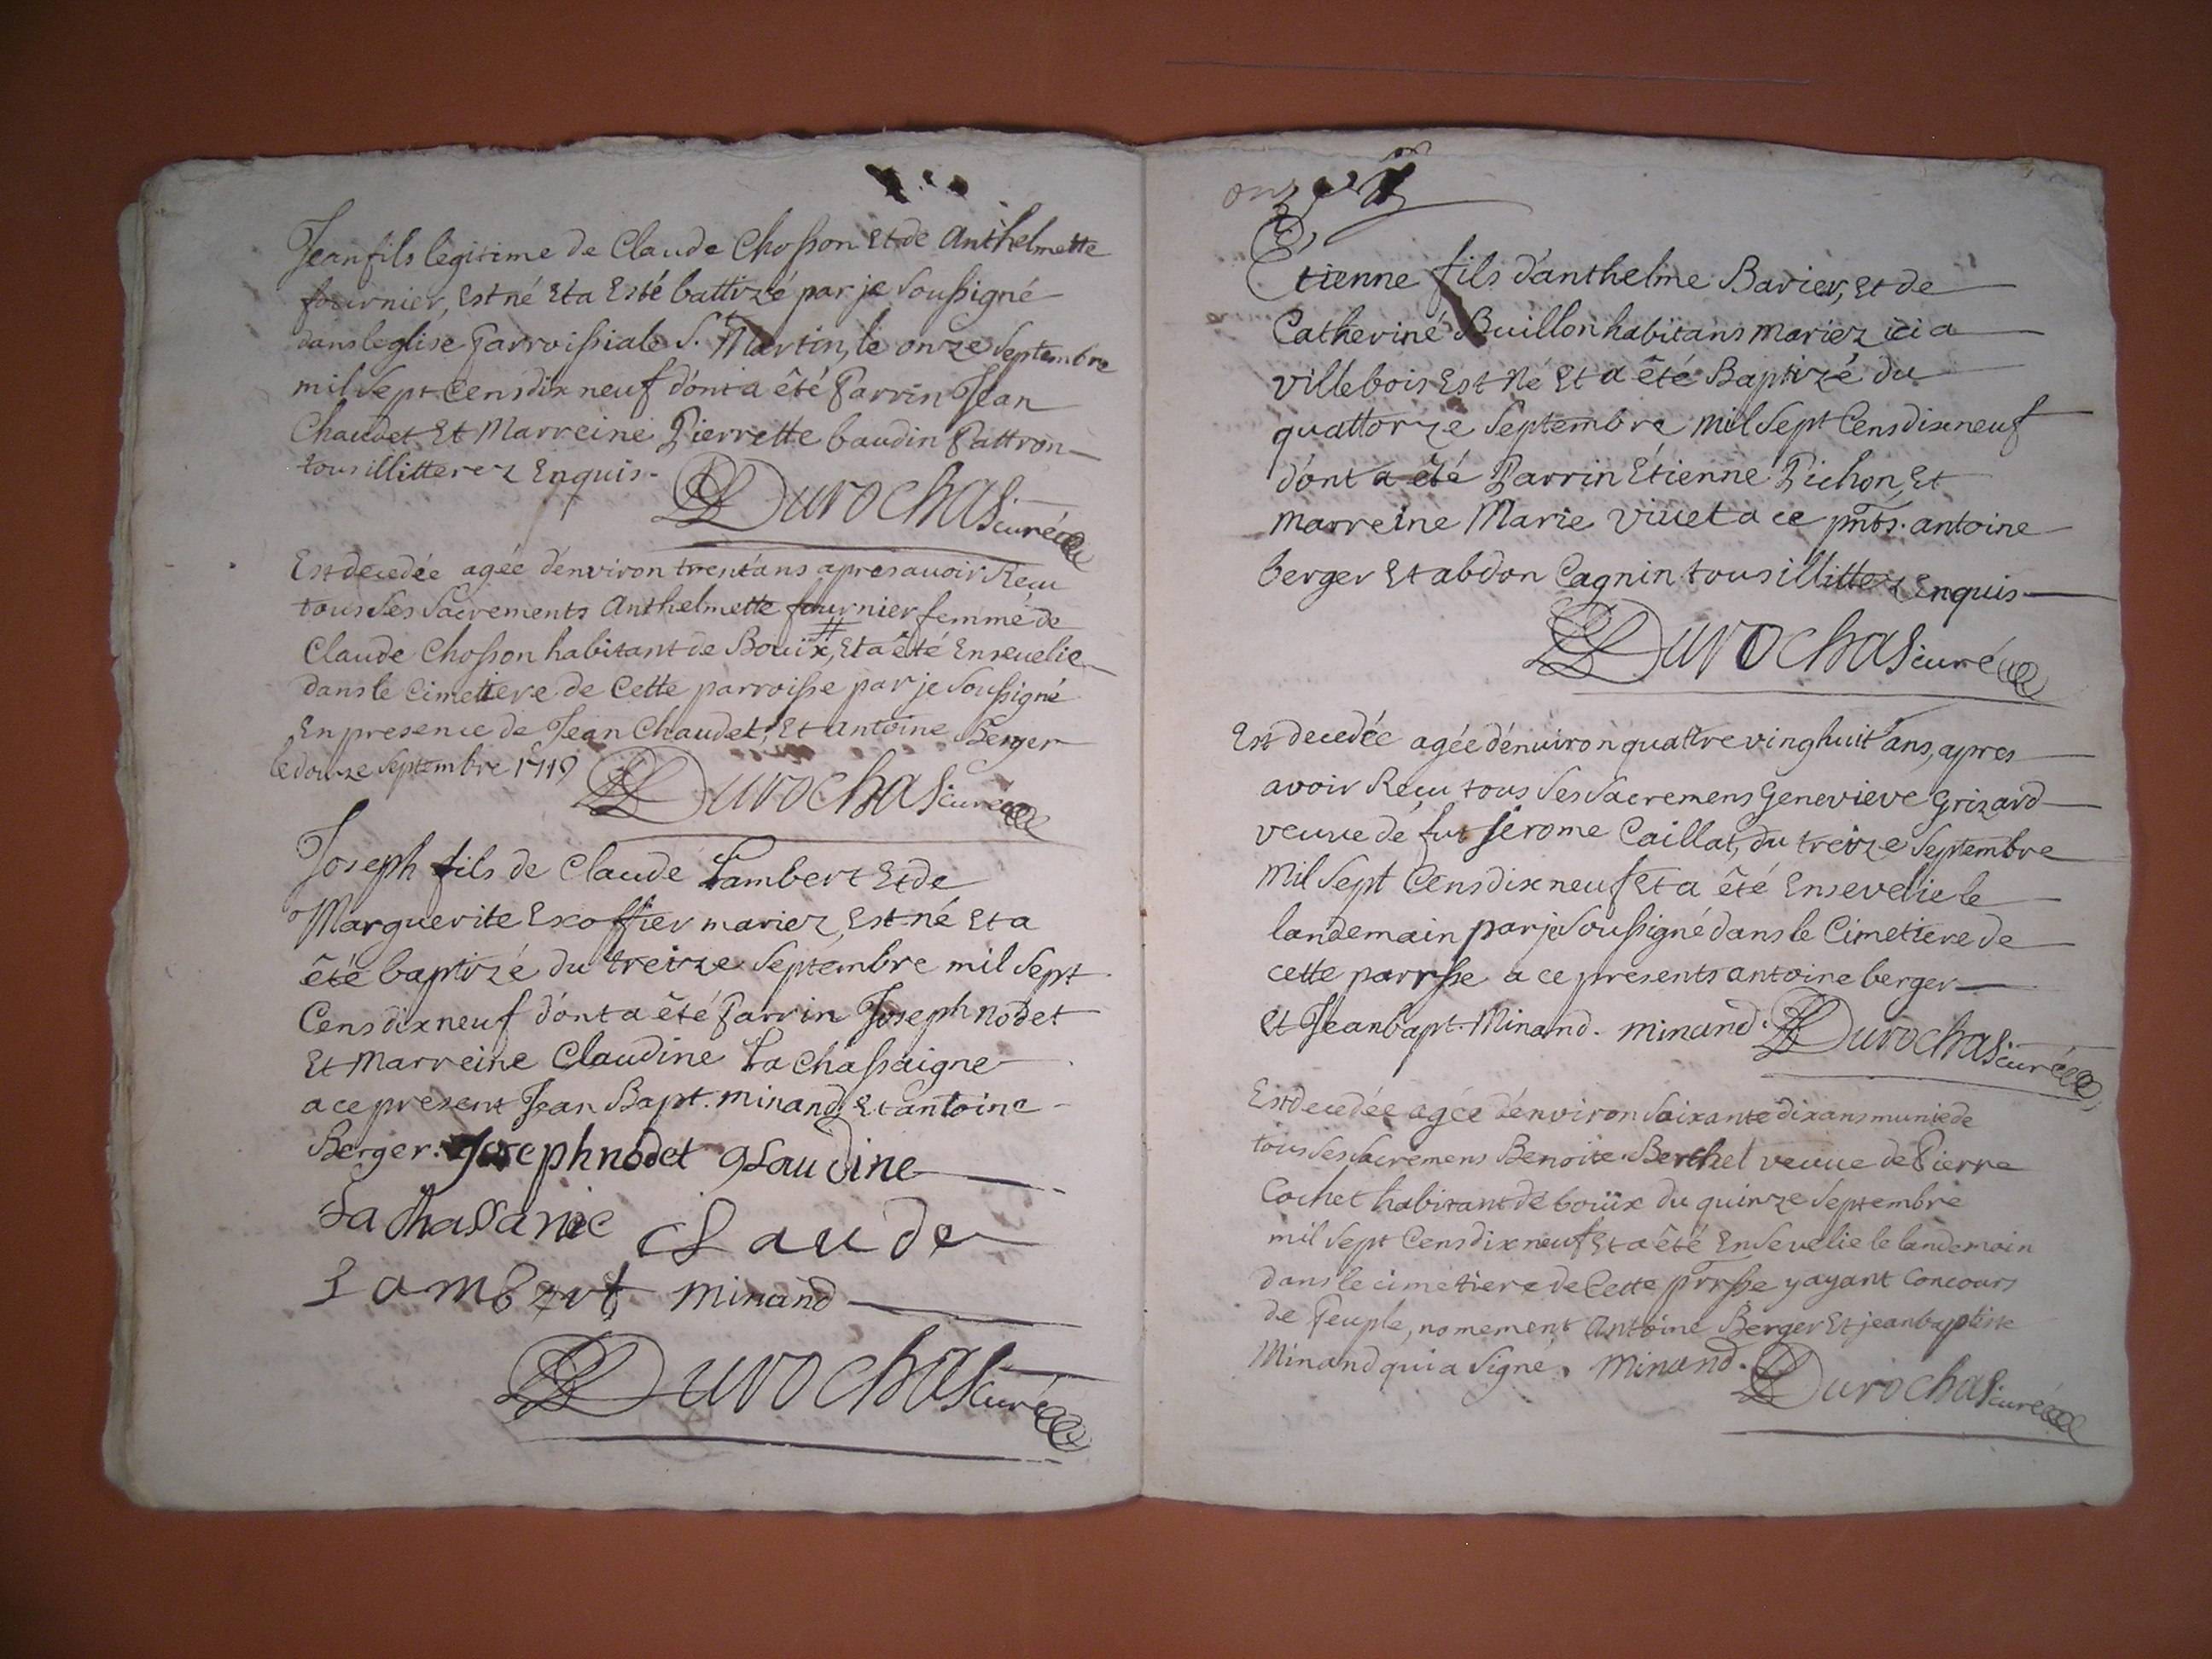 Jean fils legitime de Claude Chosson Et de Anthelmette
fournier, Est né Et a Esté battizé par je soussigné
dans leglise Parroissiale S.t Martin, le onze septembre
mil sept Cens dix neuf dónt a êté Parrin Jean
Chaudet Et Marreine Pierrette baudin Pattron
tous illitterez Enquis.
Durochas curé
Est decedée agée d'environ trent'ans apres avoir Reçu
tous ses sacrements Anthelmette fournier femme de
Claude Chosson habitant de Bouix, Et a êté Ensevelie
dans le Cimetiere de Cette parroisse par je soussigné
En presence de Jean Chaudet, Et antoine Berger
le douze septembre 1719
Durochas curé
Joseph fils de Claude Lambert Et de
Marguerite Exoffier mariez, Est né Et a
êté baptizé du treize septembre mil sept
Cens dix neuf dónt a êté Parrin Joseph nodet
Et Marreine Claudine La Chassaigne
a ce present Jean Bapt. minand Et antoine
Berger. Joseph nodet glaudine
La chassanie claude
Lambert minand
Durochas curé
onze
Etienne fils d'anthelme Barier, Et de
Catheriné Buillon habitans mariez ici a
villebois Est Né Et a êté Baptizé du
quattorze septembre mil sept Cens dix neuf
dónt a êté Parrin Etienne Pichon, Et
marreine Marie vivet a ce pnts. antoine
berger Et abdon Cagnin tous illitterez Enquis
Durochas curé
Est decedée agée d'environ quattre ving huit ans, apres
avoir Reçu tous ses sacremens Genevieve Grizard
veuve de fut jerome Caillat, du treize septembre
mil sept Cens dix neuf Et a êté Ensevelie le
landemain par je soussigné dans le Cimetiere de
cette parrsse a ce presents antoine berger
Et Jean bapt. Minand. minand. Durochas curé
Est decedée agée d'environ soixante dix ans munie de
tous ses sacremens Benoite Berthet veuve de Pierre
Cochet habitant de boüix du quinze septembre
mil sept Cens dix neuf Et a êté Ensevelie le landemain
dans le cimetiere de Cette prrsse y ayant Concours
de Peuple, nomement Antoine Berger Et jean baptiste
Minand qui a signé. minand. Durochas curé